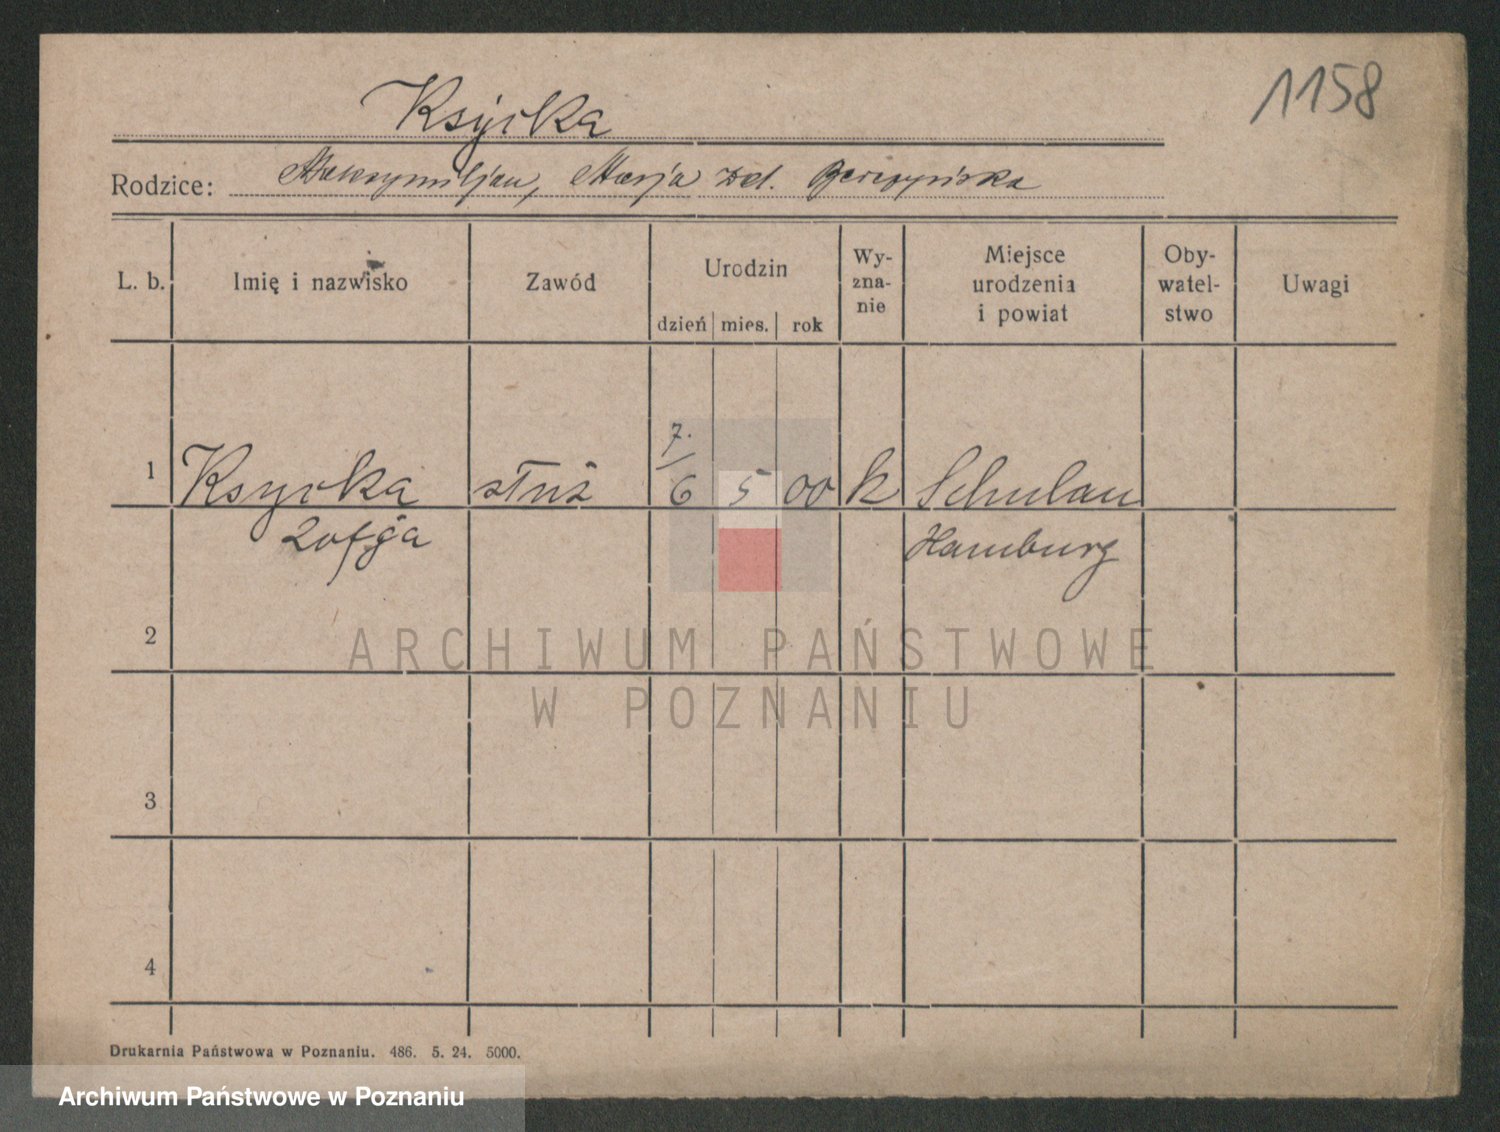 Ksycka
1158
Rodzice: Maksymiljan, Marja zd.
L. b. Imię i nazwisko Zawód Urodzin dzień mies. rok Wy-zna-nie Miejsce urodzenia i powiat Oby-watel-stwo Uwagi
7.
1 Ksycka służ 6 5 00 k Schulau
Zofja Hamburg
2
ARCHIWUM PAŃSTWOWE
W POZNANIU
3
4
Drukarnia Państwowa w Poznaniu. 486. 5. 24. 5000.
Archiwum Państwowe w Poznaniu